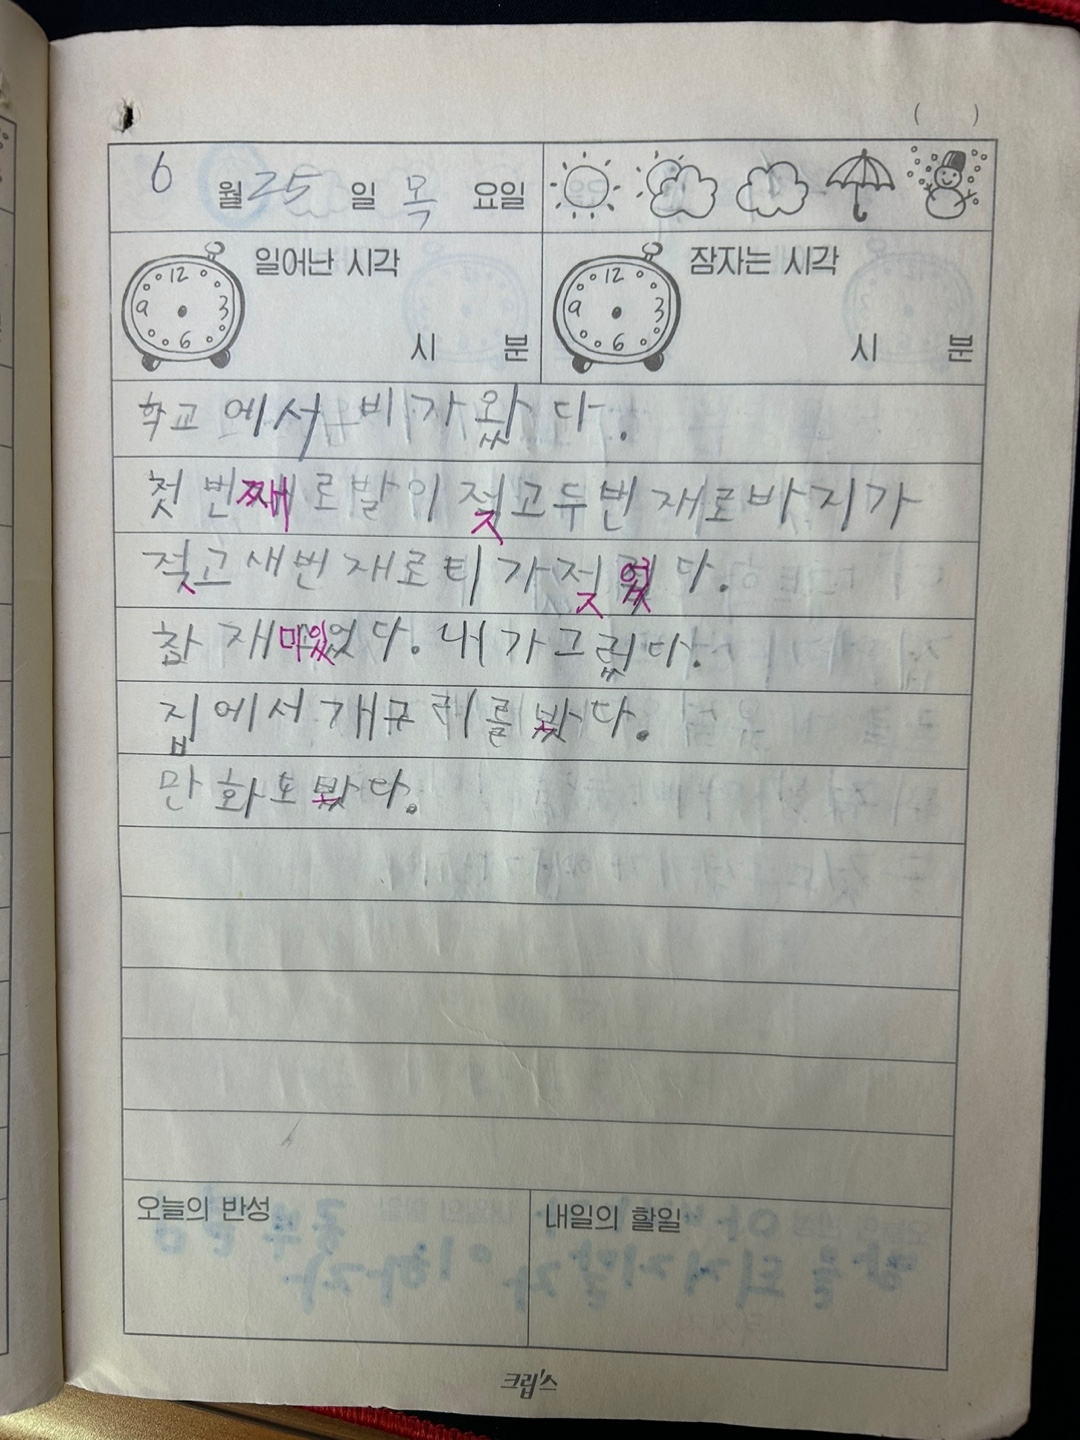 ( )
6 월 25 일 목 요일
일어난 시각 시 분
잠자는 시각 시 분
12 3 6 9
12 3 6 9
학교에서 비가 왔다.
첫번째로 발이 젖고 두번재로 바지가
젖고 새번재로 티가 젖었다.
참 재미있었다. 내가 그렸다.
집에서 개구리를 봤다.
만화도 봤다.
오늘의 반성
내일의 할일
크립스